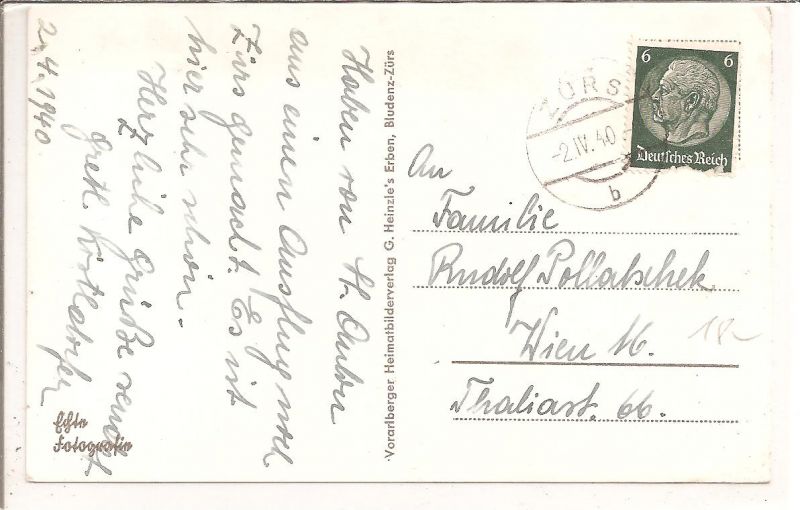 Haben von St. Anton
aus einen Ausflug nach
Zürs gemacht. Es ist
hier sehr schön.
Herzliche Grüße sendet
Gretl
2.4.1940
Echte
Fotografie
Vorarlberger Heimatbilderverlag G. Heinzle's Erben, Bludenz-Zürs
ZÜRS
-2.IV.40
b
6 6
Deutsches Reich
An
Familie
Rudolf Pollatschek
Wien 16.
Thaliastr. 66.
18-